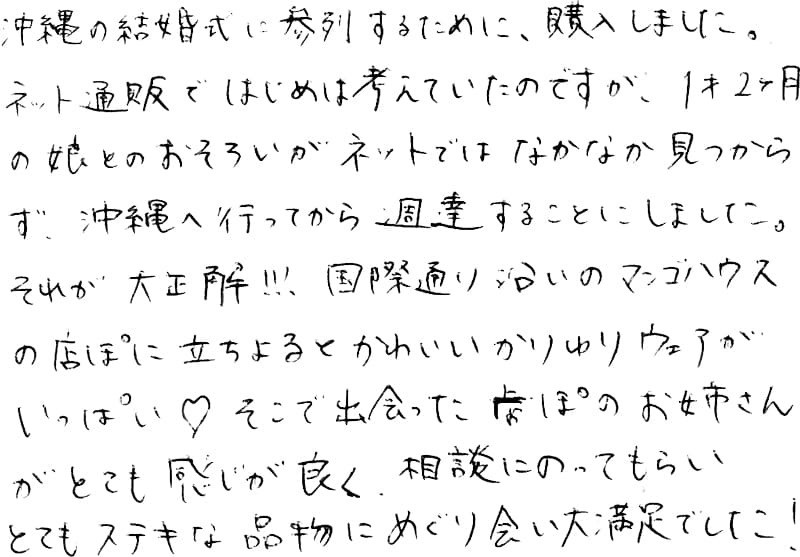 沖縄の結婚式に参列するために、購入しました。
ネット通販ではじめは考えていたのですが、1才2ヶ月
の娘とのおそろいがネットではなかなか見つから
ず、沖縄へ行ってから週達することにしました。
それが大正解!!! 国際通り沿いのマンゴハウス
の店ぽに立ちよるとかわいいかりゆりウェアが
いっぱい♡ そこで出会ったぽのお姉さん
がとても感じが良く、相談にのってもらい
とてもステキな品物にめぐり会い大満足でした!